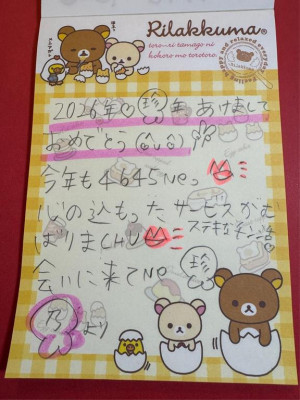 Rilakkuma®
toro~ri tamago ni
kokoro mo torotoro.
2026年♡珍年 あけまして
おめでとう
今年も4645Neっ
心の込もったサービスがむ
ばりまCHU
ステキな年に
会いに来てNe 珍
乃より